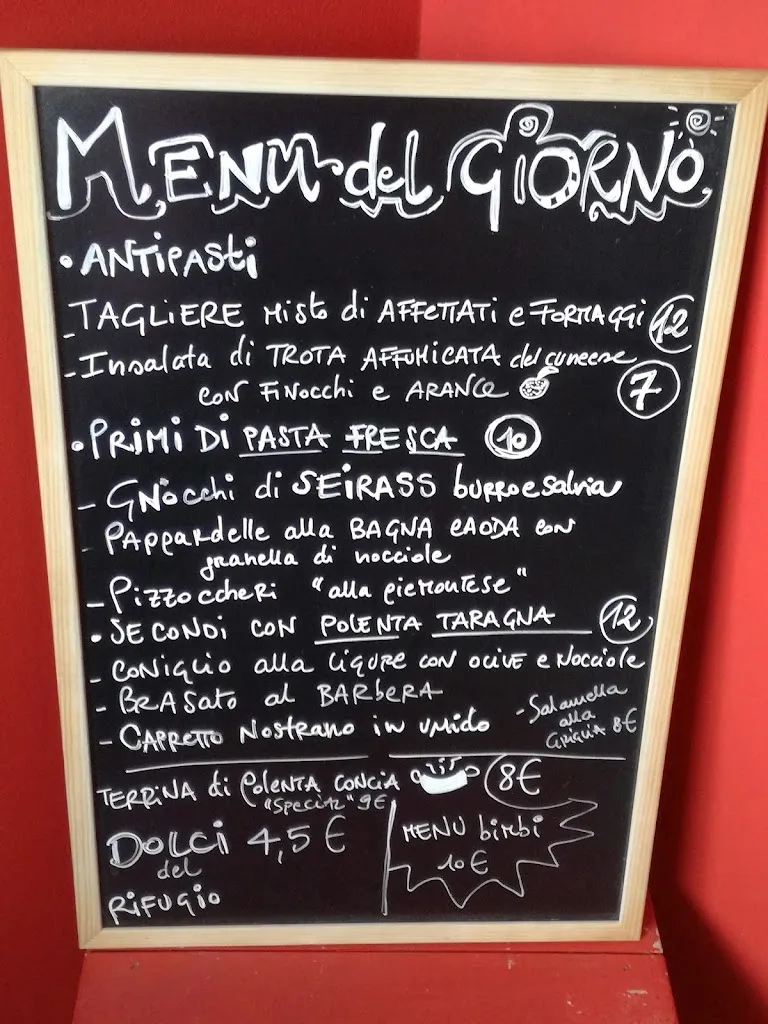 MENU del GIORNO
• ANTIPASTI
- TAGLIERE misto di AFFETTATI e FORMAGGI 12
- Insalata di TROTA AFFUMICATA del cuneese
CON FINOCCHI e ARANCE 7
• PRIMI DI PASTA FRESCA 10
- GNOCCHI di SEIRASS burro e salvia
- PAPPARDELLE alla BAGNA CAODA con
granella di nocciole
- Pizzoccheri "alla piemontese"
• SECONDI CON POLENTA TARAGNA 12
- CONIGLIO alla LIGURE con OLIVE e NOCCIOLE
- BRASATO al BARBERA
- CAPRETTO NOSTRANO in UMIDO
- Salamella
alla
GRIGLIA 8€
TERRINA di POLENTA CONCIA 8€
"Special" 9€
DOLCI 4,5 €
del
RIFUGIO
MENU bimbi
10€